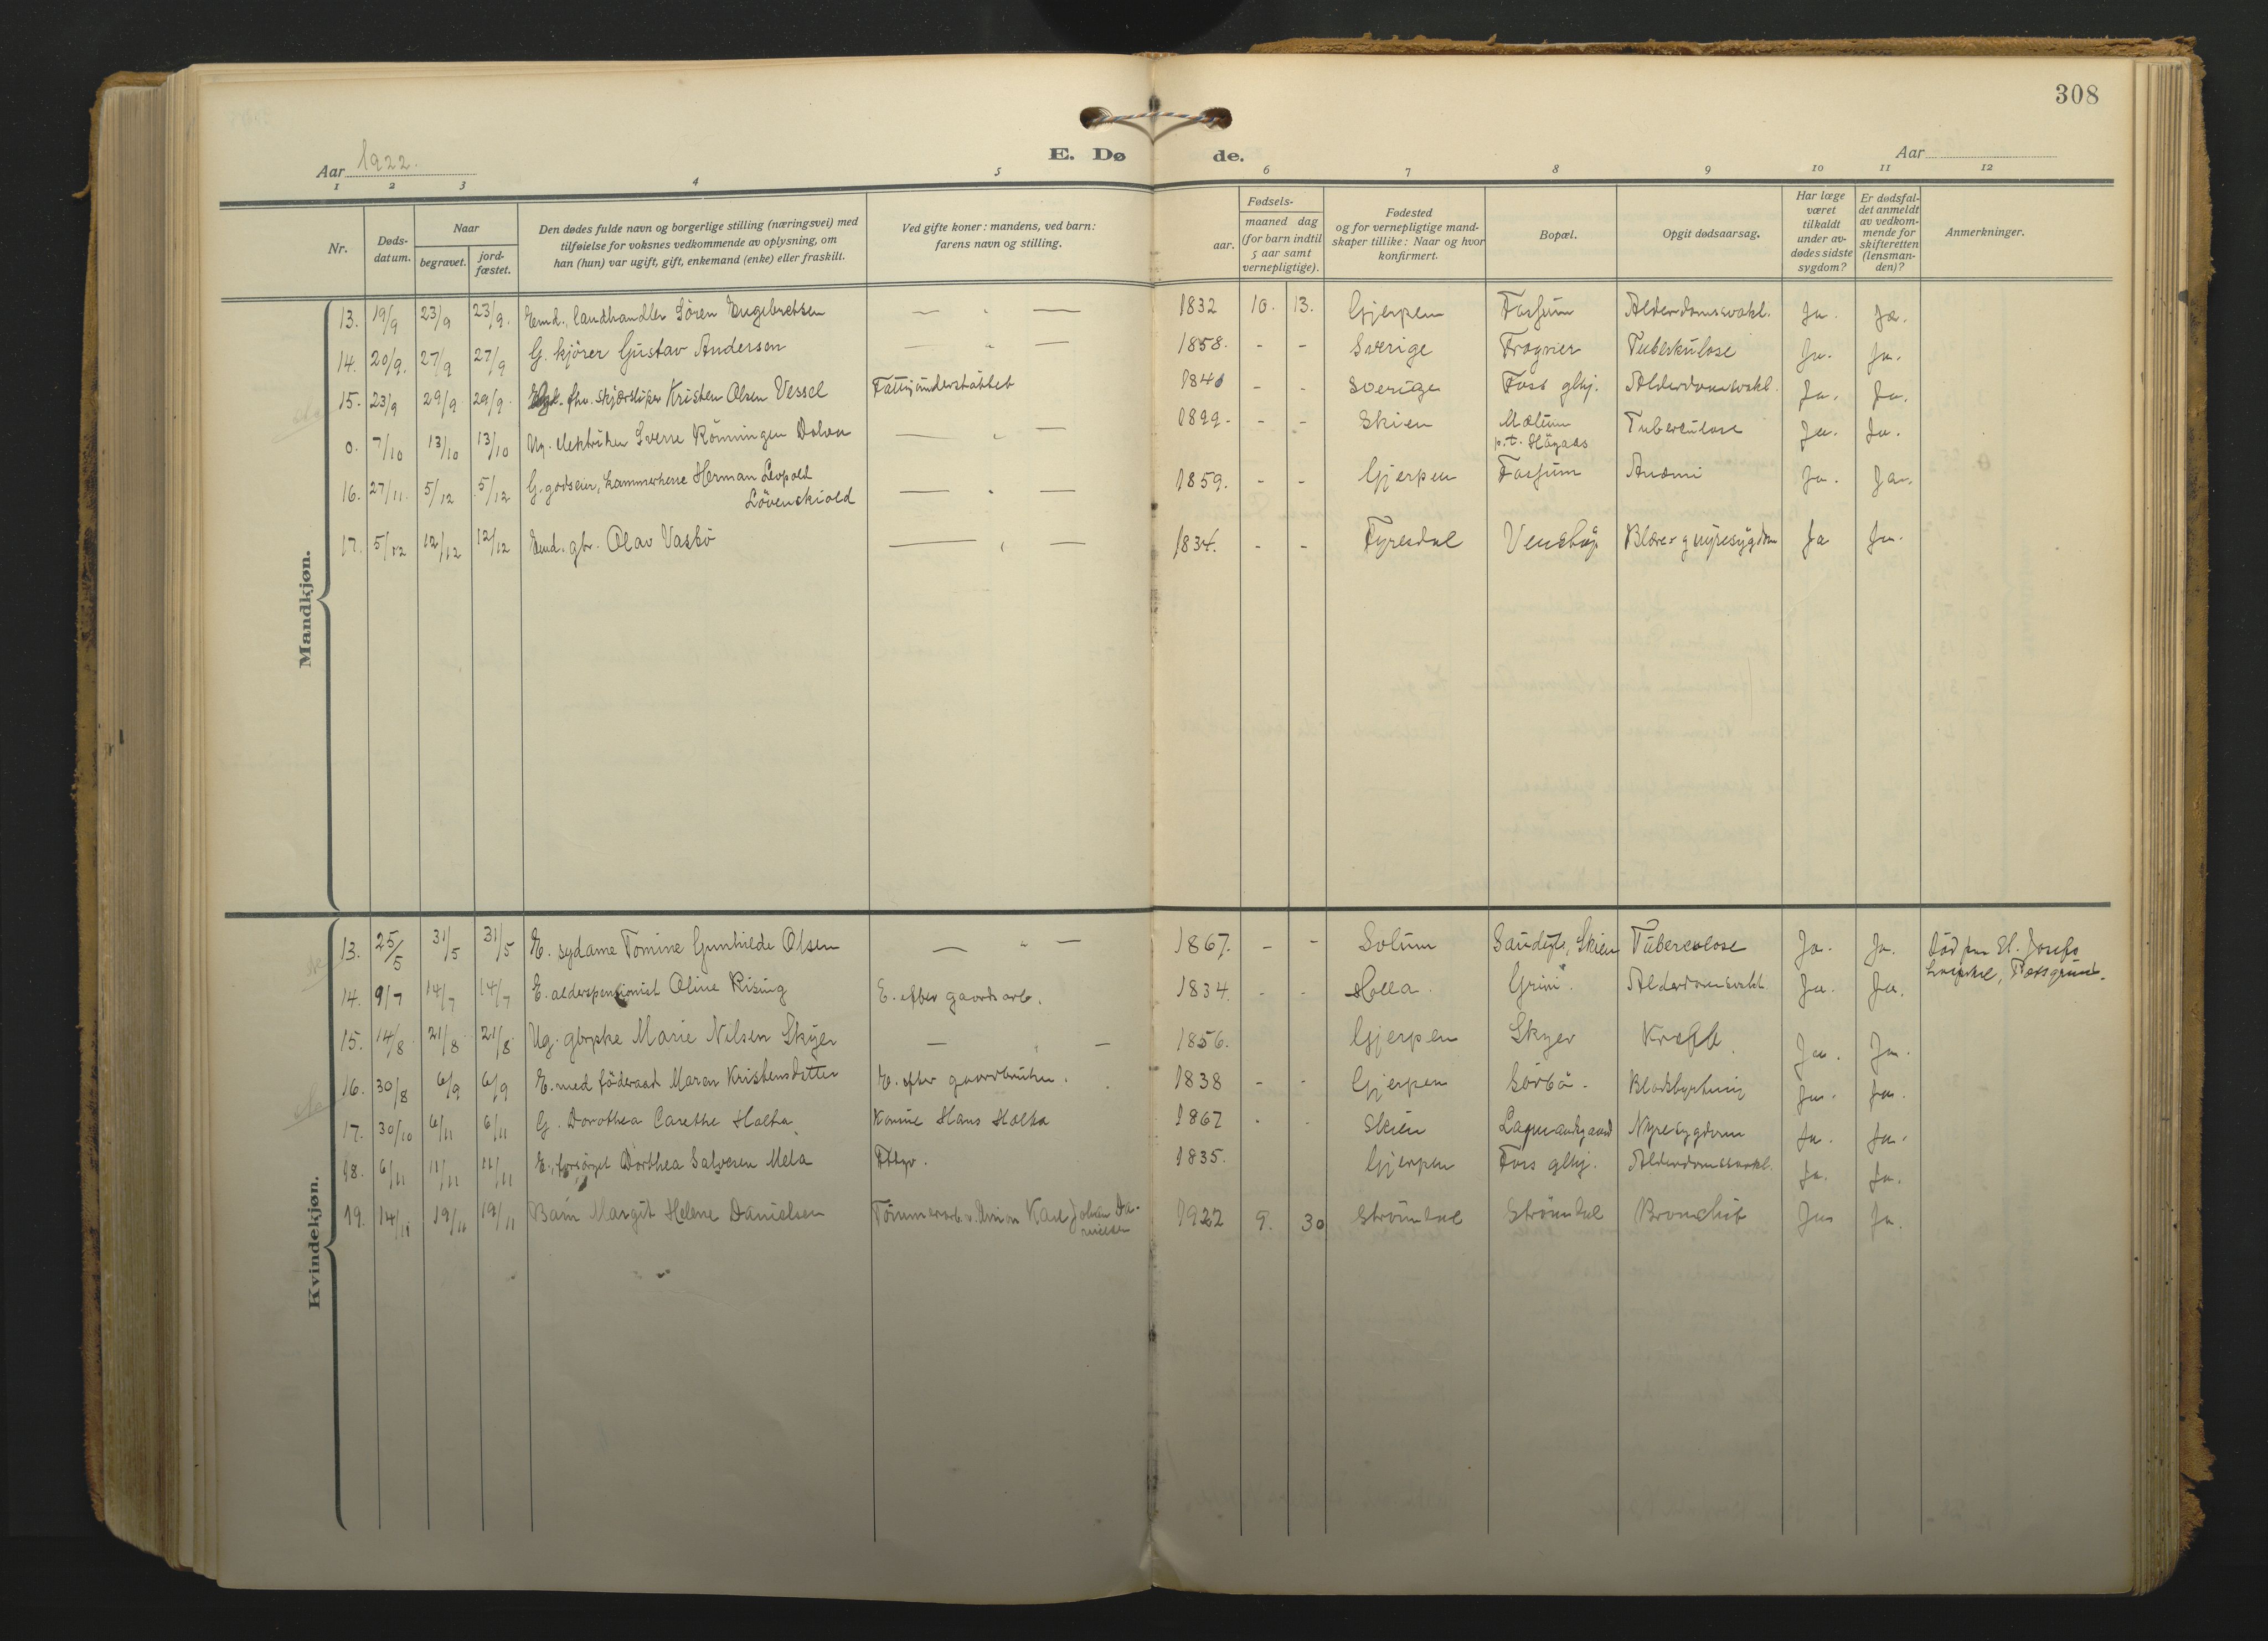 308
Aar 1922.
E. Dø de.
Aar
1 2 3 4 5 6 7 8 9 10 11 12
Nr.
Døds-
datum.
Naar
begravet.
jord-
fæstet.
Den dødes fulde navn og borgerlige stilling (næringsvei) med
tilføielse for voksnes vedkommende av oplysning, om
han (hun) var ugift, gift, enkemand (enke) eller fraskilt.
Ved gifte koner: mandens, ved barn:
farens navn og stilling.
aar.
Fødsels-
maaned dag
(for barn indtil
5 aar samt
vernepligtige).
Fødested
og for vernepligtige mand-
skaper tillike: Naar og hvor
konfirmert.
Bopæl.
Opgit dødsaarsag.
Har læge
været
tilkaldt
under av-
dødes sidste
sygdom?
Er dødsfal-
det anmeldt
av vedkom-
mende for
skifteretten
(lensman-
den)?
Anmerkninger.
Mandkjøn.
13. 19/9 23/9 23/9. Emd., landhandler Sören Engebretsen — " — 1832 10. 13. Gjerpen Fossum Alderdomssvakh. Ja. Ja.
14. 20/9. 27/9 27/9 G. kjörer Gustav Anderson — " — 1858. - - Sverige Frogner Tuberkulose Ja. Ja.
15. 23/9 29/9 29/9. fhv. skjærsliper Kristen Olsen Vessel Fattigunderstöttet - - Sverige Foss glhj. Alderdomssvakh. Ja. Ja.
0. 7/10 13/10 13/10 Ug. elektriker Sverre Rönningen Dolva — " — 1899. - - Skien Mælum Tuberculose Ja. Ja.
p.t.
16. 27/11. 5/12 5/12 G. godseier, kammerherre Herman Leopold — " — 1859. - - Gjerpen Fossum Anæmi Ja. Ja.
Lövenskiold
17. 5/12 12/12 12/12 Emd. gbr. Olav Vasbö — " — 1834. - - Fyresdal Venstöp Blære- g nyresygdom Ja Ja.
Kvindekjøn.
13. 25/5 31/5 31/5 E. sydame Tomine Gunhilde Olsen — " — 1867. - - Solum Skien Tuberculose Ja. Ja. Död paa St. Josefs
hospital, Porsgrund.
14. 9/7 14/7 14/7 E. alderspensionist Oline Rising E. efter gaardsarb. 1834. - - Holla. Grini. Alderdomssvakh. Ja. Ja.
15. 14/8 21/8 21/8 Ug. gbrpke Marie Nilsen Skyer — " — 1856. Gjerpen Skyer Kræft. Ja. Ja.
16. 30/8 6/9 6/9 E. med föderaad Maren Kristensdatter E. efter gaardbruker. 1838 - - Gjerpen Sörbö. Blodstyrtning Ja. Ja.
17. 30/10 6/11 6/11 G. Dorothea Carethe Holta Konsul Hans Holta 1867 - - Skien Lagmandsgaard Nyresygdom Ja. Ja.
18. 6/11 11/11 11/11 E., forsörget Dorthea Salvesen Mela 1835. Gjerpen Foss glhj. Alderdomssvakh. Ja. Ja.
19. 14/11 19/11 19/11 Barn Margit Helene Danielsen Tömmerarb. v. Union Karl Johan Da-
nielsen 1922 9. 30 Strömdal Strömdal Bronchit Ja Ja.